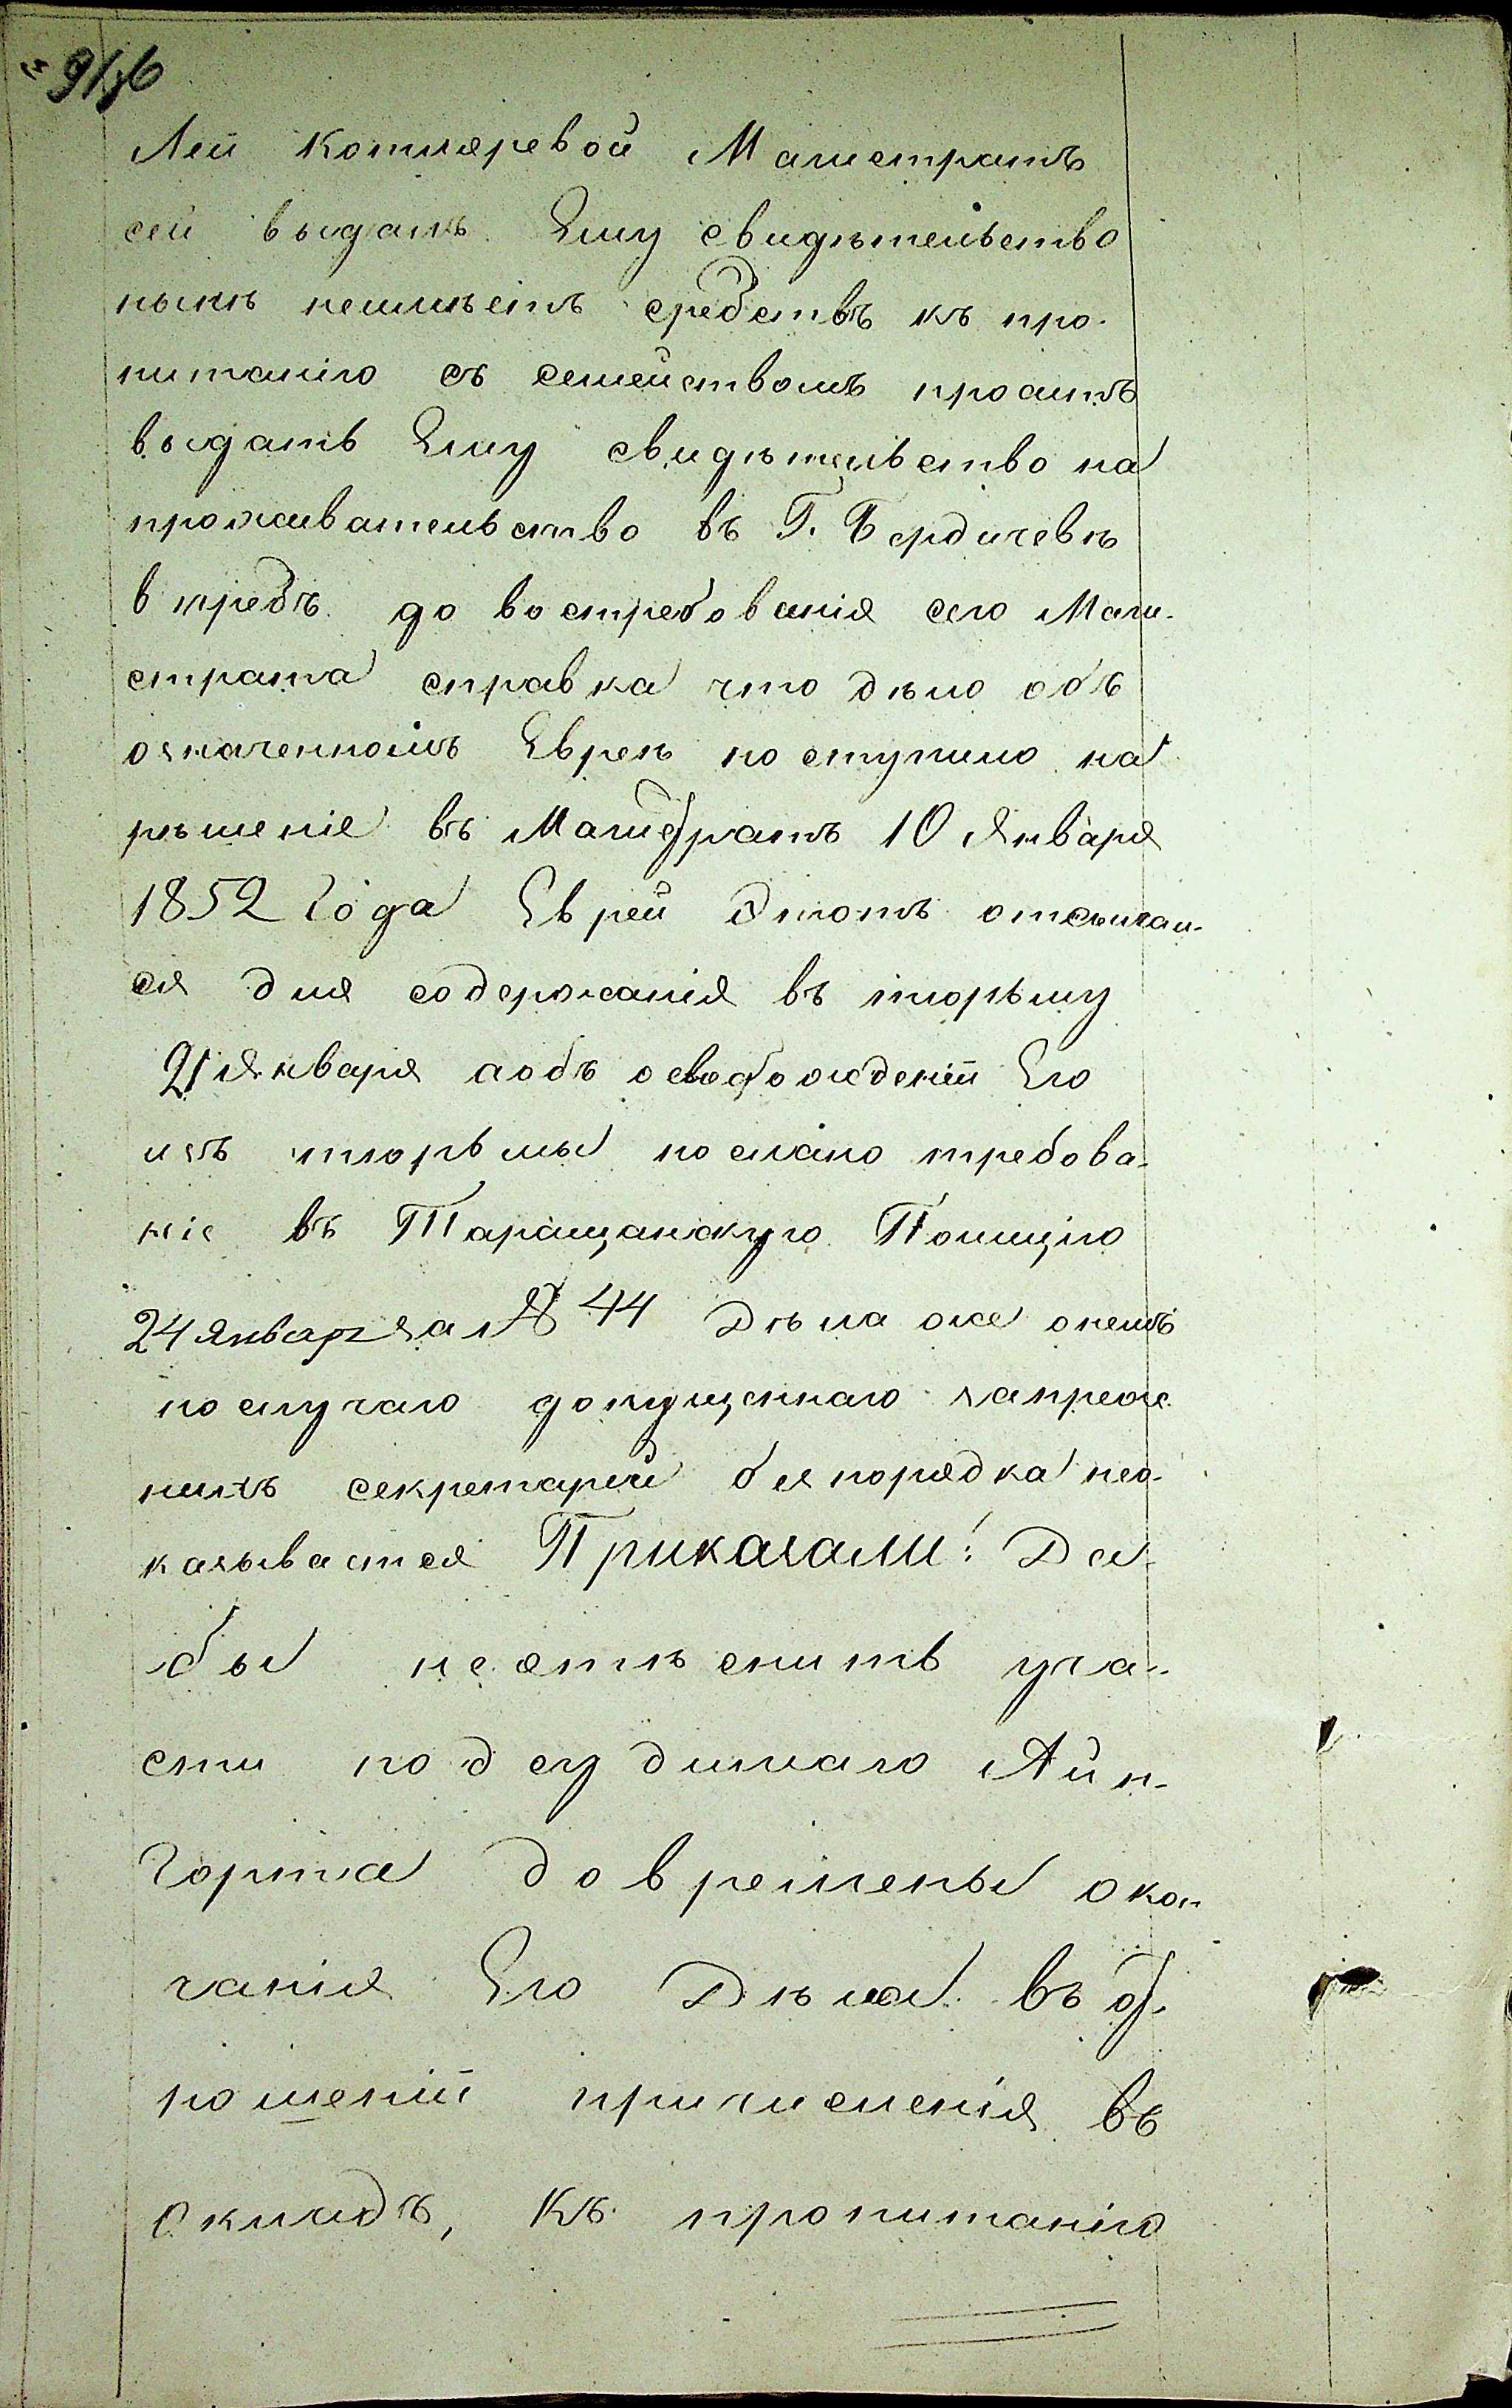 Леи Котляревой Магистратъ
сей выдалъ Ему свидѣтельство
нынѣ неимѣетъ средствъ къ про-
питанію съ семействомъ проситъ
выдать Ему свидѣтельство на
проживательство въ Г. Бердичевѣ
впредь до востребованія сего Маги-
страта справка что дѣло объ
означенномъ Евреѣ поступило на
рѣшеніе въ Магистратъ 10 Января
1852 Года Еврей Этотъ отсылал-
ся для содержанія въ тюрьму
21 Января аобъ освобожденіи Его
изъ тюрьмы послано требова-
ніе въ Таращанскую Полицію
24 Января за № 44 Дѣла же онемъ
по случаю допущеннаго запреж
нихъ секретарей безпорядка нео-
казывается Приказали: Да-
бы не отяснить уча-
сти подсудимаго Айн-
Горта до времены окон
чанія Его Дѣла въ от-
ношеніи причисленія въ
окладъ, къ пропитанію